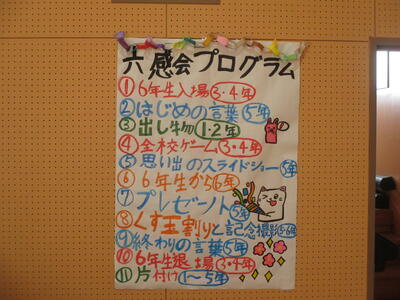 六感会プログラム
①6年生入場(3・4年)
②はじめの言葉(5年)
③出し物(1・2年)
④全校ゲーム(3・4年)
⑤思い出のスライドショー(5年)
⑥6年生から(6年)
⑦プレゼント(5年)
⑧くす玉割りと記念撮影(5・6年)
⑨終わりの言葉(5年)
⑩6年生退場(3・4年)
⑪片付け(1〜5年)